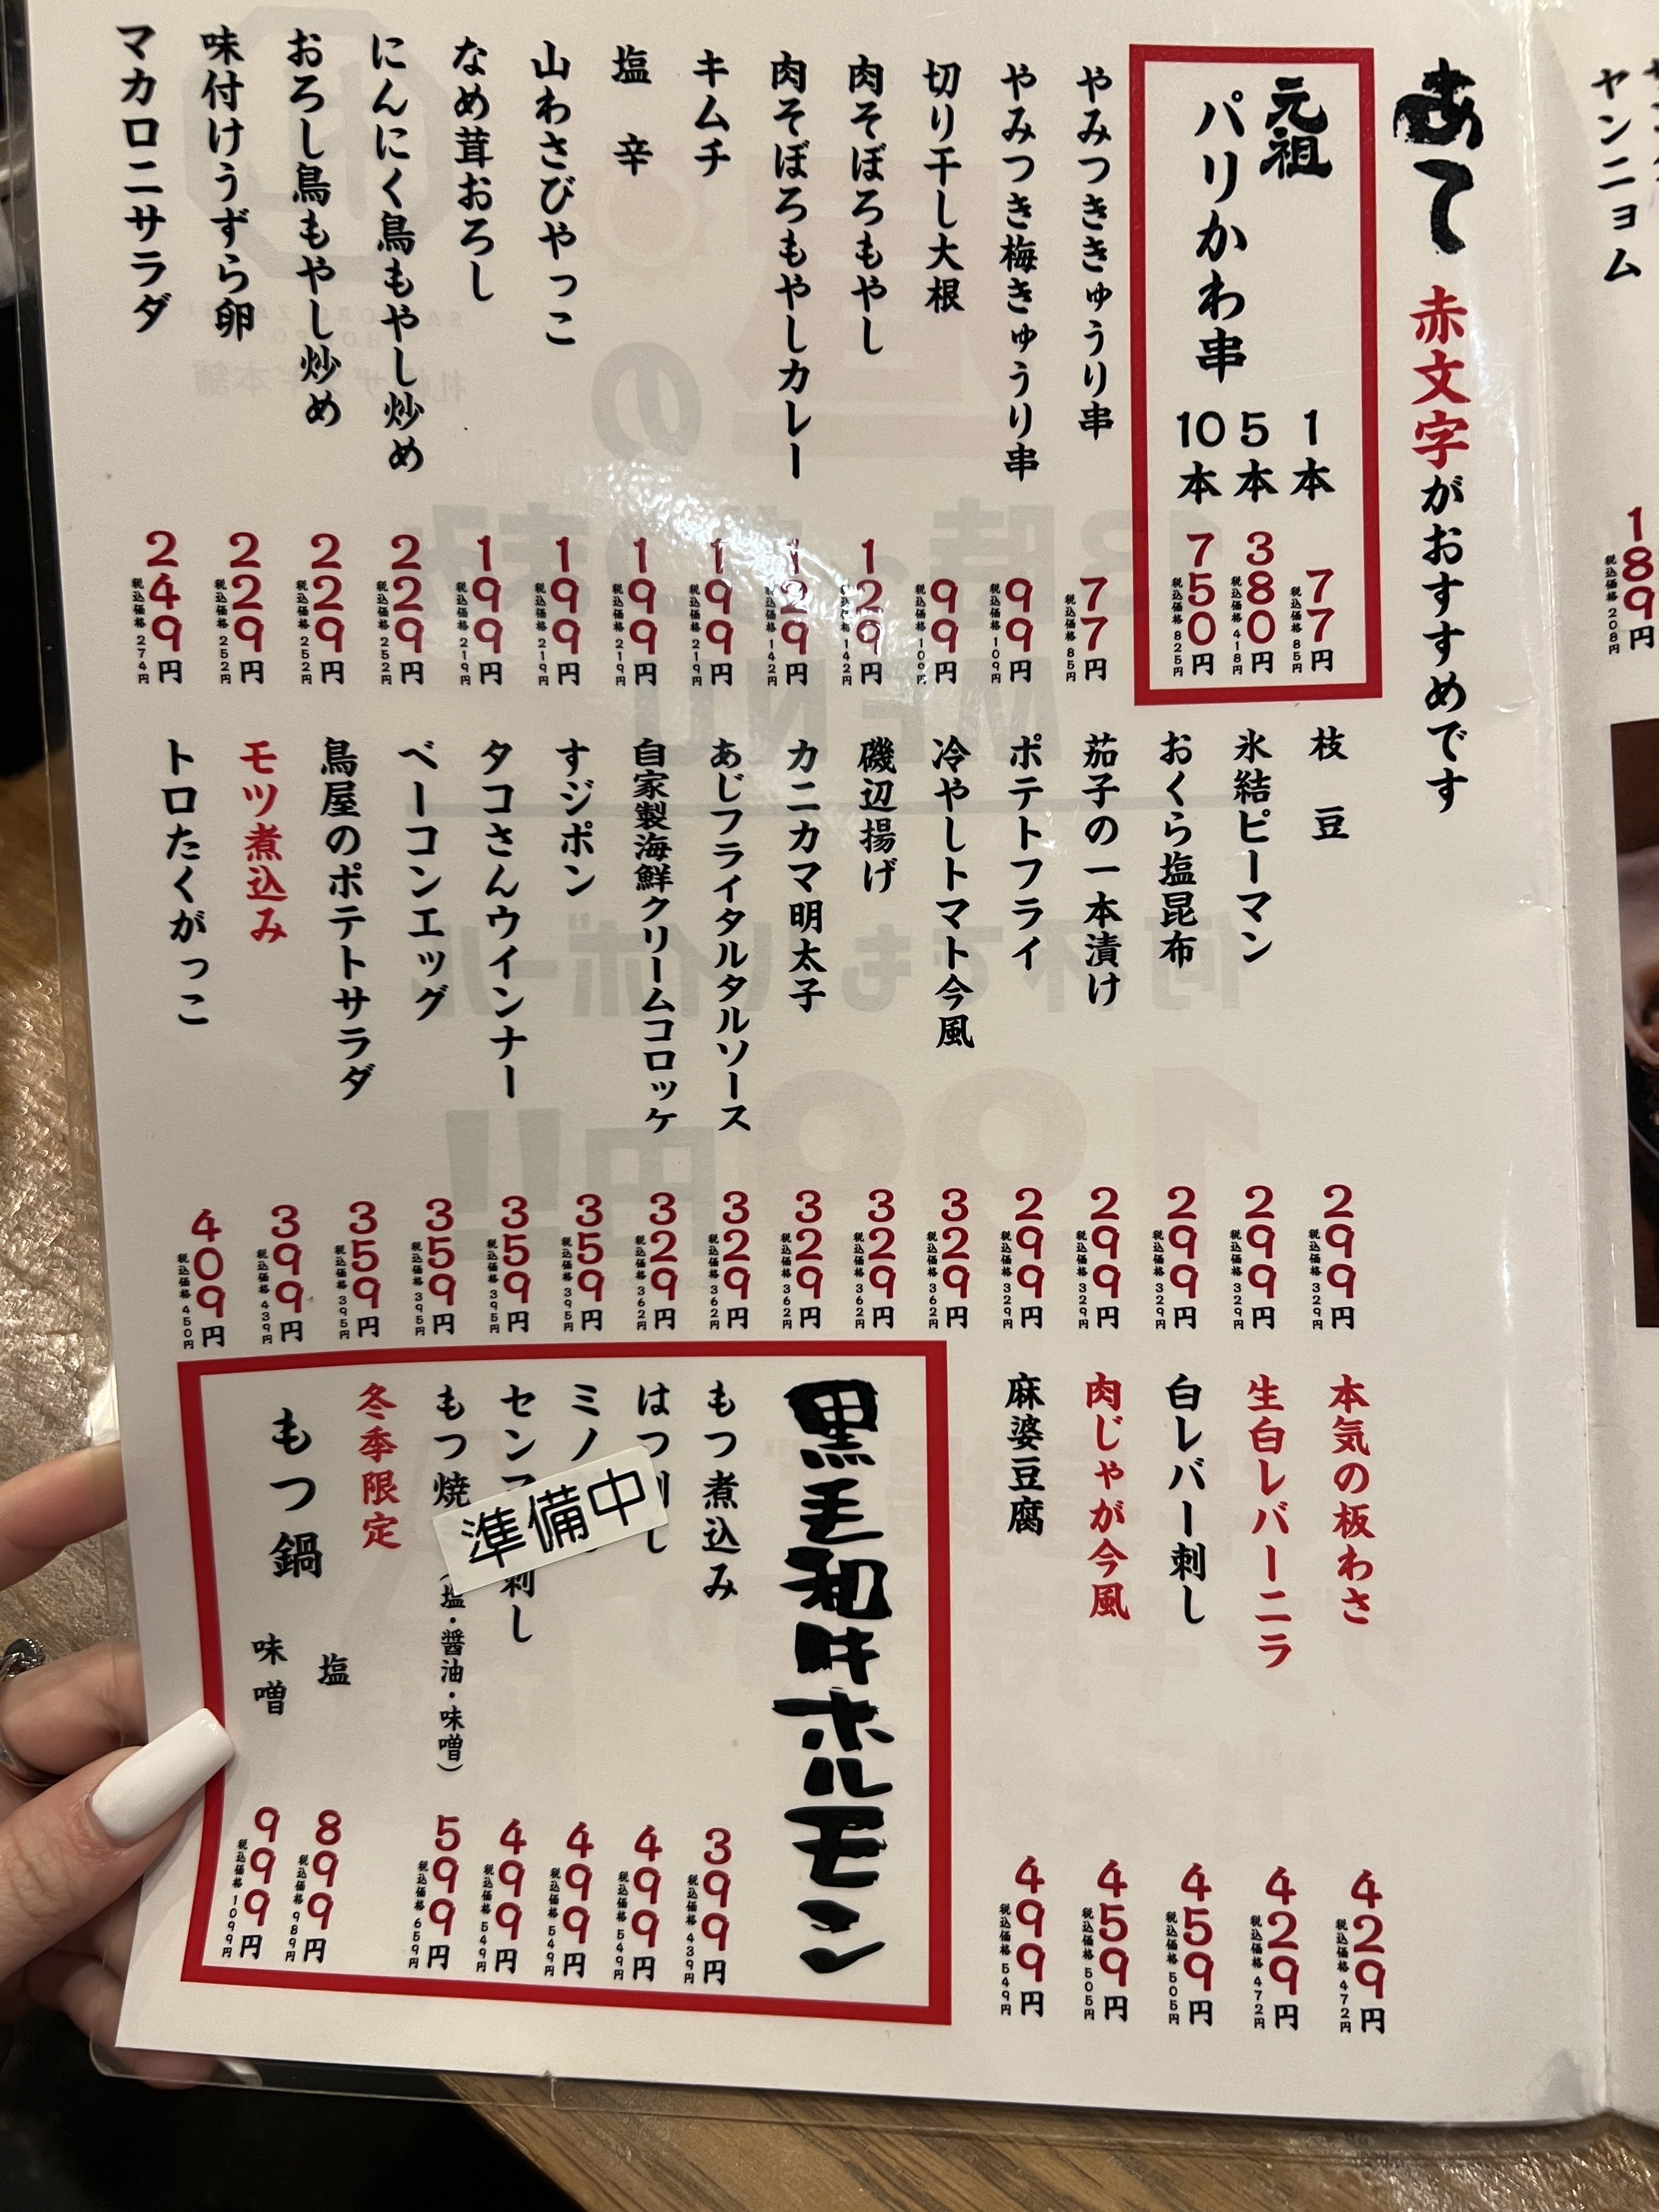 あて 赤文字がおすすめです
元祖
パリかわ串
1本 77円 税込価格 85円
5本 380円 税込価格 418円
10本 750円 税込価格 825円
やみつききゅうり串 77円 税込価格 85円
やみつき梅きゅうり串 99円 税込価格 109円
切り干し大根 99円 税込価格 109円
肉そぼろもやし 129円 税込価格 142円
肉そぼろもやしカレー 129円 税込価格 142円
キムチ 199円 税込価格 219円
塩辛 199円 税込価格 219円
山わさびやっこ 199円 税込価格 219円
なめ茸おろし 199円 税込価格 219円
にんにく鳥もやし炒め 229円 税込価格 252円
おろし鳥もやし炒め 229円 税込価格 252円
味付けうずら卵 229円 税込価格 252円
マカロニサラダ 249円 税込価格 274円
枝豆 299円 税込価格 329円
氷結ピーマン 299円 税込価格 329円
おくら塩昆布 299円 税込価格 329円
茄子の一本漬け 299円 税込価格 329円
ポテトフライ 299円 税込価格 329円
冷やしトマト今風 329円 税込価格 362円
磯辺揚げ 329円 税込価格 362円
カニカマ明太子 329円 税込価格 362円
あじフライタルタルソース 329円 税込価格 362円
自家製海鮮クリームコロッケ 329円 税込価格 362円
すジポン 359円 税込価格 395円
タコさんウインナー 359円 税込価格 395円
ベーコンエッグ 359円 税込価格 395円
鳥屋のポテトサラダ 359円 税込価格 395円
モツ煮込み 399円 税込価格 439円
トロたくがっこ 409円 税込価格 450円
本気の板わさ 429円 税込価格 472円
生白レバーニラ 429円 税込価格 472円
白レバー刺し 459円 税込価格 505円
肉じゃが今風 459円 税込価格 505円
麻婆豆腐 499円 税込価格 549円
黒毛和牛ホルモン
もつ煮込み 399円 税込価格 439円
はつ し 499円 税込価格 549円
ミノ 499円 税込価格 549円
セン 刺し 499円 税込価格 549円
もつ焼 塩・醤油・味噌） 599円 税込価格 659円
準備中
冬季限定
もつ鍋
塩 899円 税込価格 989円
味噌 999円 税込価格 1099円
ヤンニョム
189円 税込価格 208円